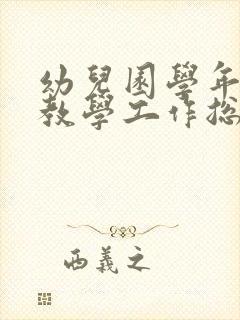 幼兒園學年
教學工作総
西義之